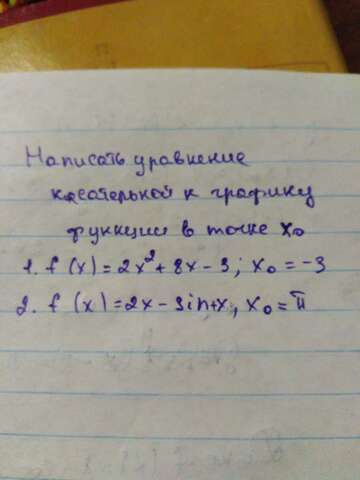 Написать уравнение
касательной к графику
функции в точке x₀
1. f(x)=2x²+8x-3; x₀=-3
2. f(x)=2x-sin+x, x₀=π